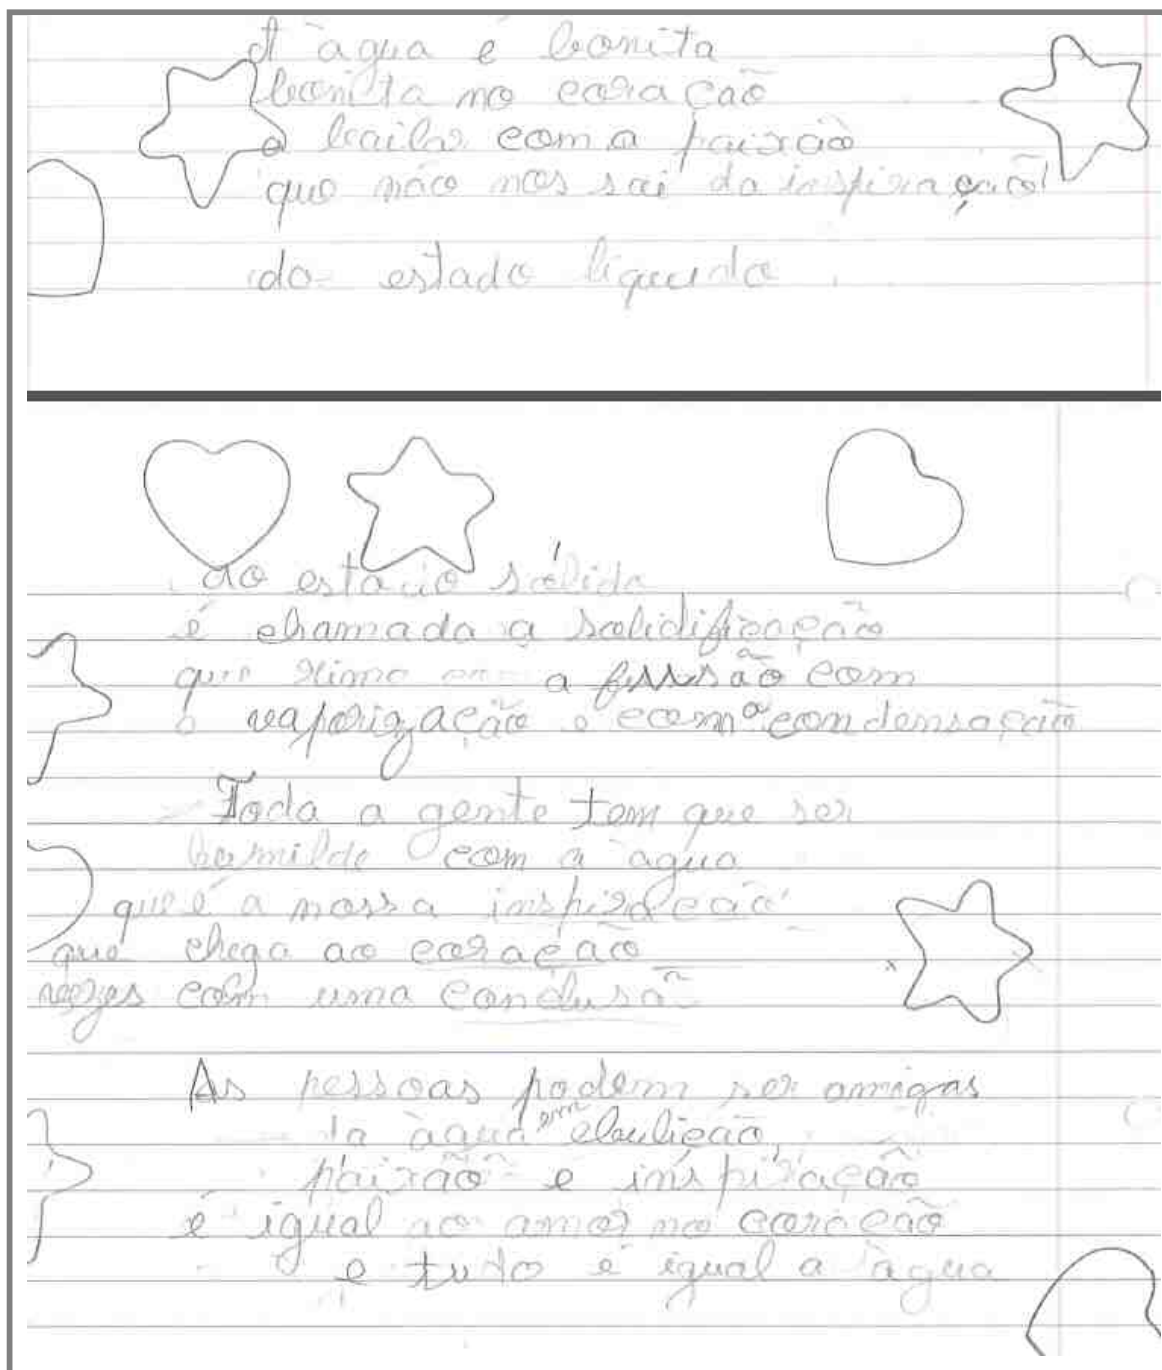 A àgua é bonita
bonita no coração
a bailar com a paixão
que não nos sai da inspiração
do estado liquido
do estado sólido
é chamada a solidificação
que rima com a fussão com
a vaporização e com a condensação
Toda a gente tem que ser
humilde com a àgua
que é a nossa inspiração
que chega ao coração
vezes com uma conclusã
As pessoas podem ser amigas
da àgua em ebulição,
paixão e inspiração
é igual ao amor no coração
e tudo é igual a àgua